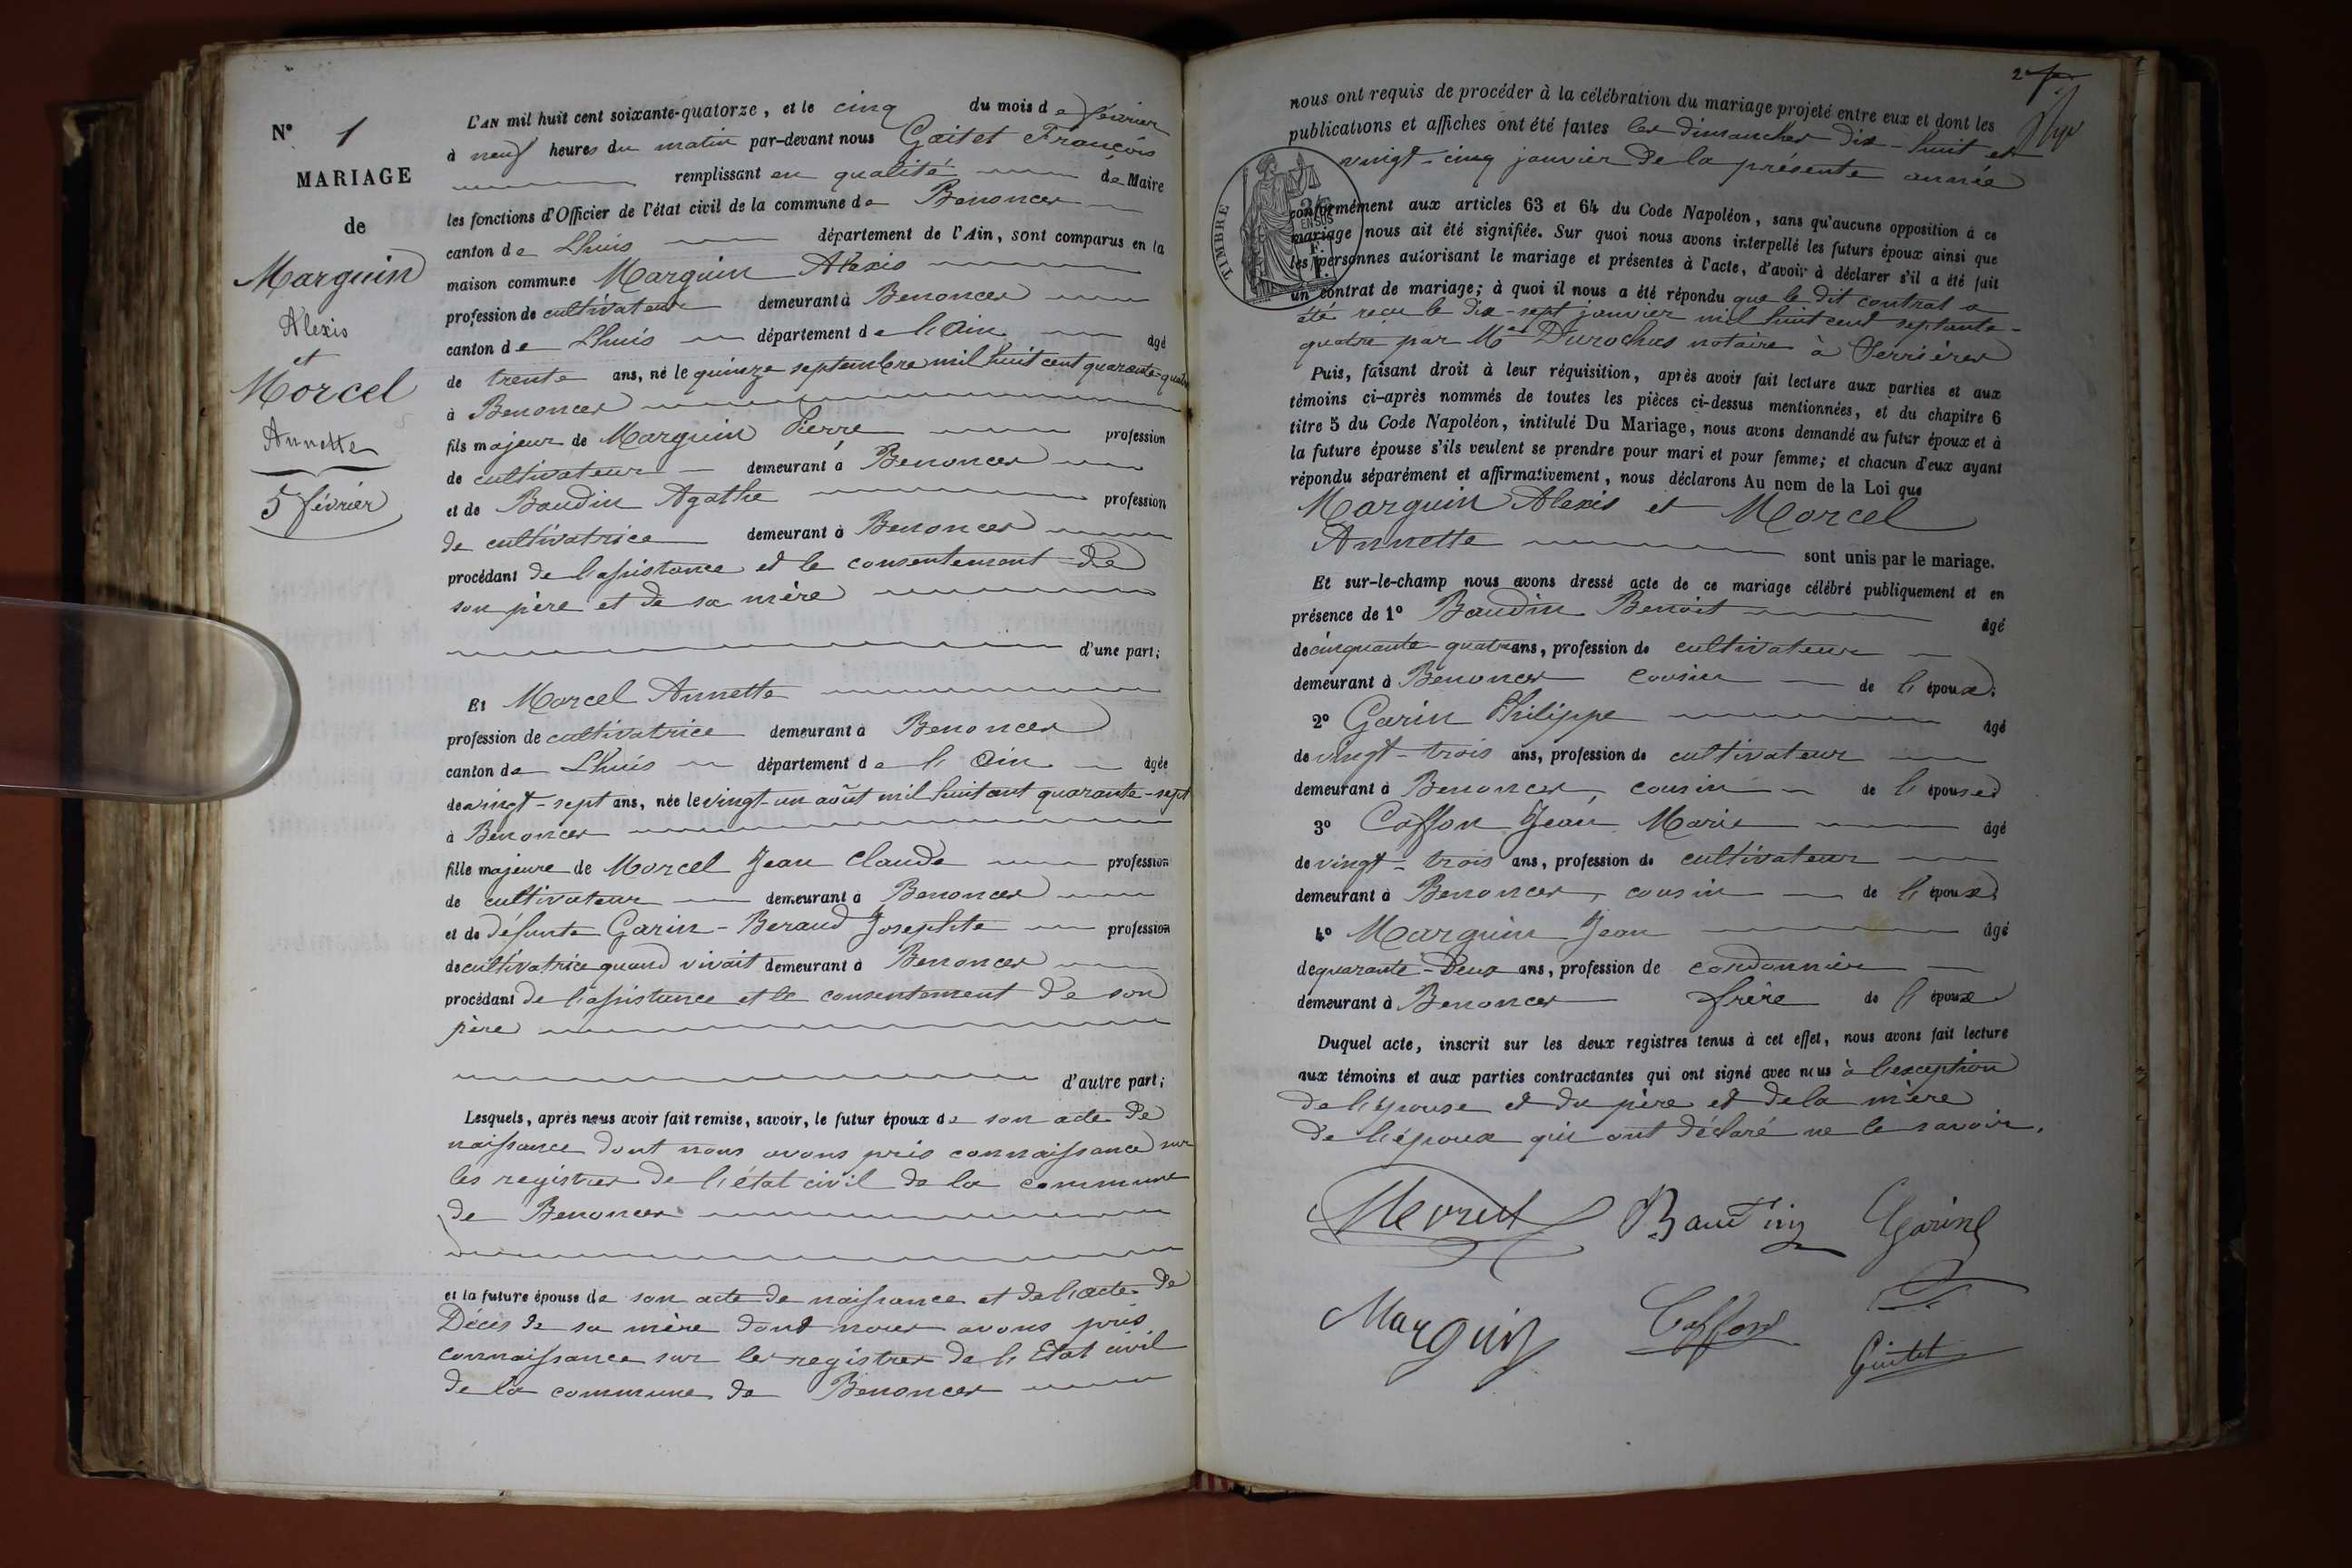 N° 1
MARIAGE
de
Marguin
Alexis
et
Morcel
Annette
5 février
L'AN mil huit cent soixante-quatorze, et le cinq du mois de février
à neuf heures du matin par-devant nous Gaitet François
remplissant en qualité de Maire
les fonctions d'Officier de l'état civil de la commune de Benonces
canton de Lhuis département de l'Ain, sont comparus en la
maison commune Marguin Alexis
profession de cultivateur demeurant à Benonces
canton de Lhuis département de l'Ain âgé
de trente ans, né le quinze septembre mil huit cent quarante-quatre
à Benonces
fils majeur de Marguin Pierre profession
de cultivateur demeurant à Benonces
et de Baudin Agathe profession
de cultivatrice demeurant à Benonces
procédant de l'assistance et le consentement de
son père et de sa mère
d'une part;
Et Morcel Annette
profession de cultivatrice demeurant à Benonces
canton de Lhuis département de l'Ain âgée
de vingt-sept ans, née le vingt-un août mil huit cent quarante-sept
à Benonces
fille majeure de Morcel Jean Claude profession
de cultivateur demeurant à Benonces
et de défunte Garin-Beraud Josephte profession
de cultivatrice quand vivait demeurant à Benonces
procédant de l'assistance et le consentement de son
père
d'autre part;
Lesquels, après nous avoir fait remise, savoir, le futur époux de son acte de
naissance dont nous avons pris connaissance sur
les registres de l'état civil de la commune
de Benonces
et la future épouse de son acte de naissance et de l'acte de
Décès de sa mère dont nous avons pris
connaissance sur les registres de l'Etat civil
de la commune de Benonces
2
nous ont requis de procéder à la célébration du mariage projeté entre eux et dont les
publications et affiches ont été faites les dimanches dix-huit et
vingt-cinq janvier de la présente année
TIMBRE
EN SUS
conformément aux articles 63 et 64 du Code Napoléon, sans qu'aucune opposition à ce
mariage nous ait été signifiée. Sur quoi nous avons interpellé les futurs époux ainsi que
les personnes autorisant le mariage et présentes à l'acte, d'avoir à déclarer s'il a été fait
un contrat de mariage; à quoi il nous a été répondu que le dit contrat a
été reçu le dix-sept janvier mil huit cent septante-
quatre par Me Durochas notaire à Serrières
Puis, faisant droit à leur réquisition, après avoir fait lecture aux parties et aux
témoins ci-après nommés de toutes les pièces ci-dessus mentionnées, et du chapitre 6
titre 5 du Code Napoléon, intitulé Du Mariage, nous avons demandé au futur époux et à
la future épouse s'ils veulent se prendre pour mari et pour femme; et chacun d'eux ayant
répondu séparément et affirmativement, nous déclarons Au nom de la Loi que
Marguin Alexis et Morcel
Annette sont unis par le mariage.
Et sur-le-champ nous avons dressé acte de ce mariage célébré publiquement et en
présence de 1° Baudin Benoit âgé
de cinquante quatre ans, profession de cultivateur
demeurant à Benonces cousin de l'époux.
2° Garin Philippe âgé
de vingt-trois ans, profession de cultivateur
demeurant à Benonces, cousin de l'épouse
3° Caffon Jean Marie âgé
de vingt-trois ans, profession de cultivateur
demeurant à Benonces, cousin de l'époux
4° Marguin Jean âgé
de quarante-deux ans, profession de cordonnier
demeurant à Benonces frère de l'époux
Duquel acte, inscrit sur les deux registres tenus à cet effet, nous avons fait lecture
aux témoins et aux parties contractantes qui ont signé avec nous à l'exception
de l'épouse et du père et de la mère
de l'époux qui ont déclaré ne le savoir.
Baudin Garin
Marguin Caffon
Gaitet